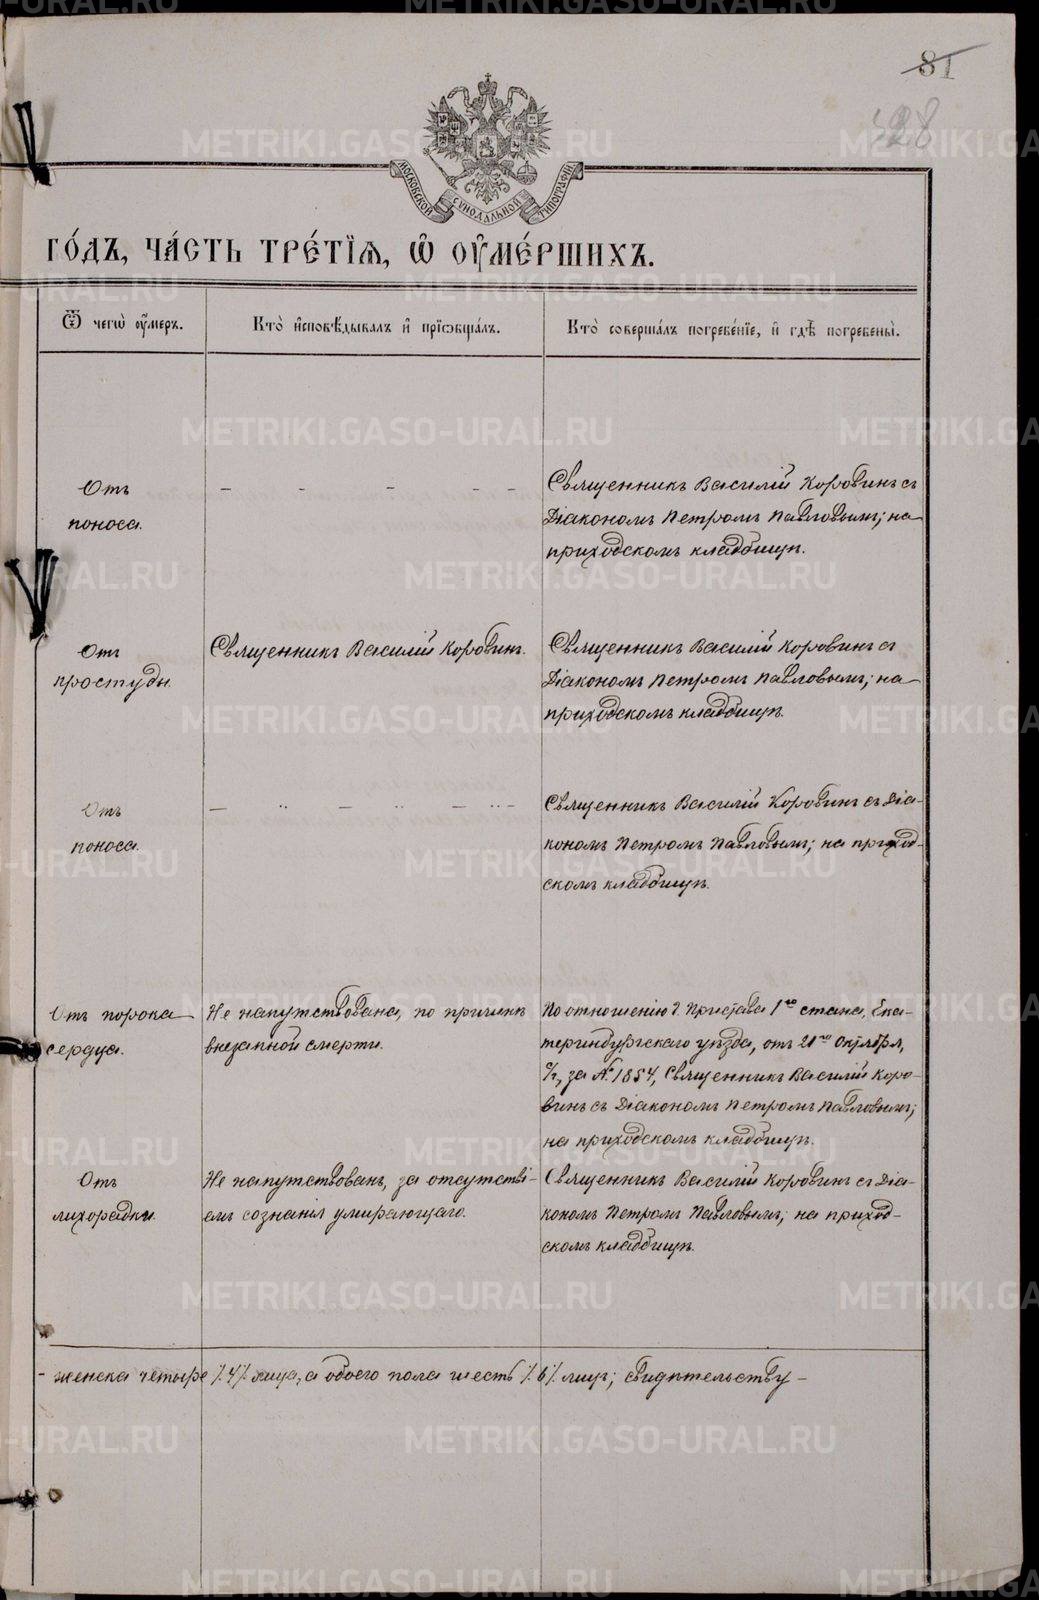 81
128
МОСКОВСКОЙ СѴНОДАЛЬНОЙ ТИПОГРАФІИ
ГО́ДЪ, ЧА́СТЬ ТРЕ́ТІѦ, Ѡ҆ ОУ҆МЕ́РШИХЪ.
Ѿ чегѡ̀ оу҆́меръ.
Кто̀ и҆сповѣ́дывалъ и҆ прїѻбща́лъ.
Кто̀ соверша́лъ погребе́нїе, и҆ гдѣ̀ погребены̀.
Отъ
поноса.
– – – – –
Священникъ Василій Коровинъ съ
Діакономъ Петромъ Павловымъ; на
приходскомъ кладбищѣ.
Отъ
простуды.
Священникъ Василій Коровинъ.
Священникъ Василій Коровинъ съ
Діакономъ Петромъ Павловымъ; на
приходскомъ кладбищѣ.
Отъ
поноса.
– .. – .. – .. –
Священникъ Василій Коровинъ съ Діа-
кономъ Петромъ Павловымъ; на приход-
скомъ кладбищѣ.
Отъ порока
сердца.
Не напутствована, по причинѣ
внезапной смерти.
По отношенію г. Пристава 1го стана, Ека-
теринбургскаго уѣзда, отъ 21го Октября,
с/г, за № 1854, Священникъ Василій Коро-
винъ съ Діакономъ Петромъ Павловымъ;
на приходскомъ кладбищѣ.
Отъ
лихорадки.
Не напутствованъ, за отсутстві-
емъ сознанія умирающаго.
Священникъ Василій Коровинъ съ Діа-
кономъ Петромъ Павловымъ; на приход-
скомъ кладбищѣ.
- женска четыре /.4/. лица, а обоего пола шесть /.6/. лицъ; свидѣтельству –
METRIKI.GASO-URAL.RU